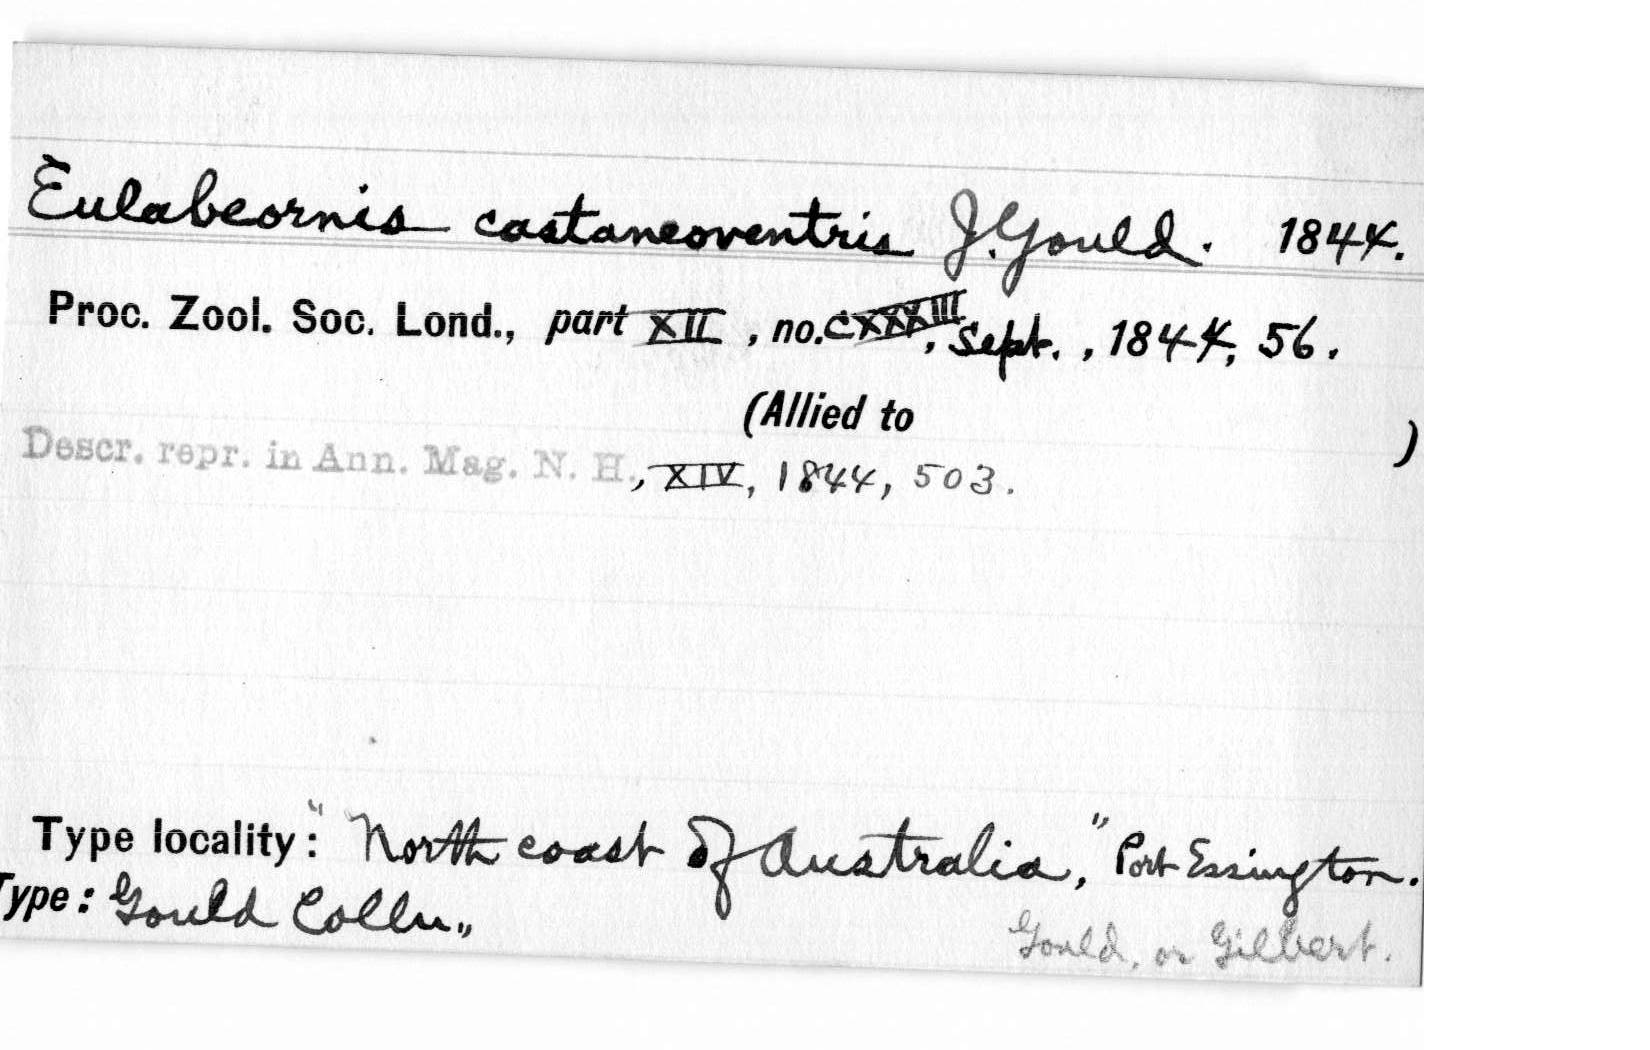 Eulabeornis castaneoventris J. Gould. 1844.
Proc. Zool. Soc. Lond., part XII, no. CXXXIII, Sept., 1844, 56.
(Allied to )
Descr. repr. in Ann. Mag. N. H., XIV, 1844, 503.
Type locality: "North coast of Australia," Port Essington.
Type: Gould Colln.,
Gould, or Gilbert.